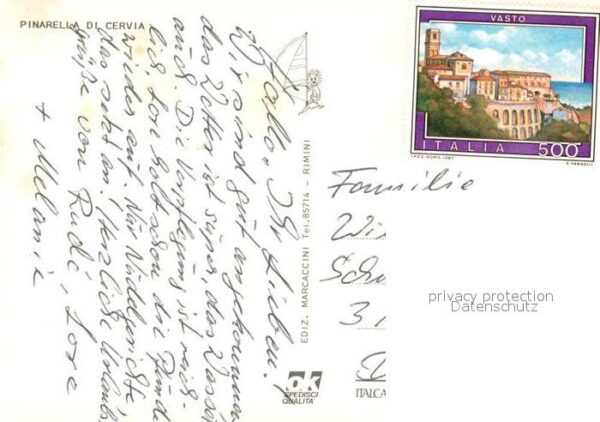 PINARELLA DI CERVIA
Hallo, Ihr Lieben!
Wir sind gut angekommen
das Wetter ist super, das Wasser
auch. Die Verpflegung ist reich-
lich, Lore holt schon die Pfunde
wieder auf. Nur Nudelgerichte
das setzt an. Herzliche Urlaubs-
grüße von Rudi, Lore
+ Melanie
EDIZ. MARCACCINI Tel. 85714 - RIMINI
ok
SPEDISCI
QUALITA
ITALCA
VASTO
ITALIA 500
I.P.Z.S. ROMA 1987
E. VANGELLI
Familie
Wi
Sch
3
privacy protection
Datenschutz